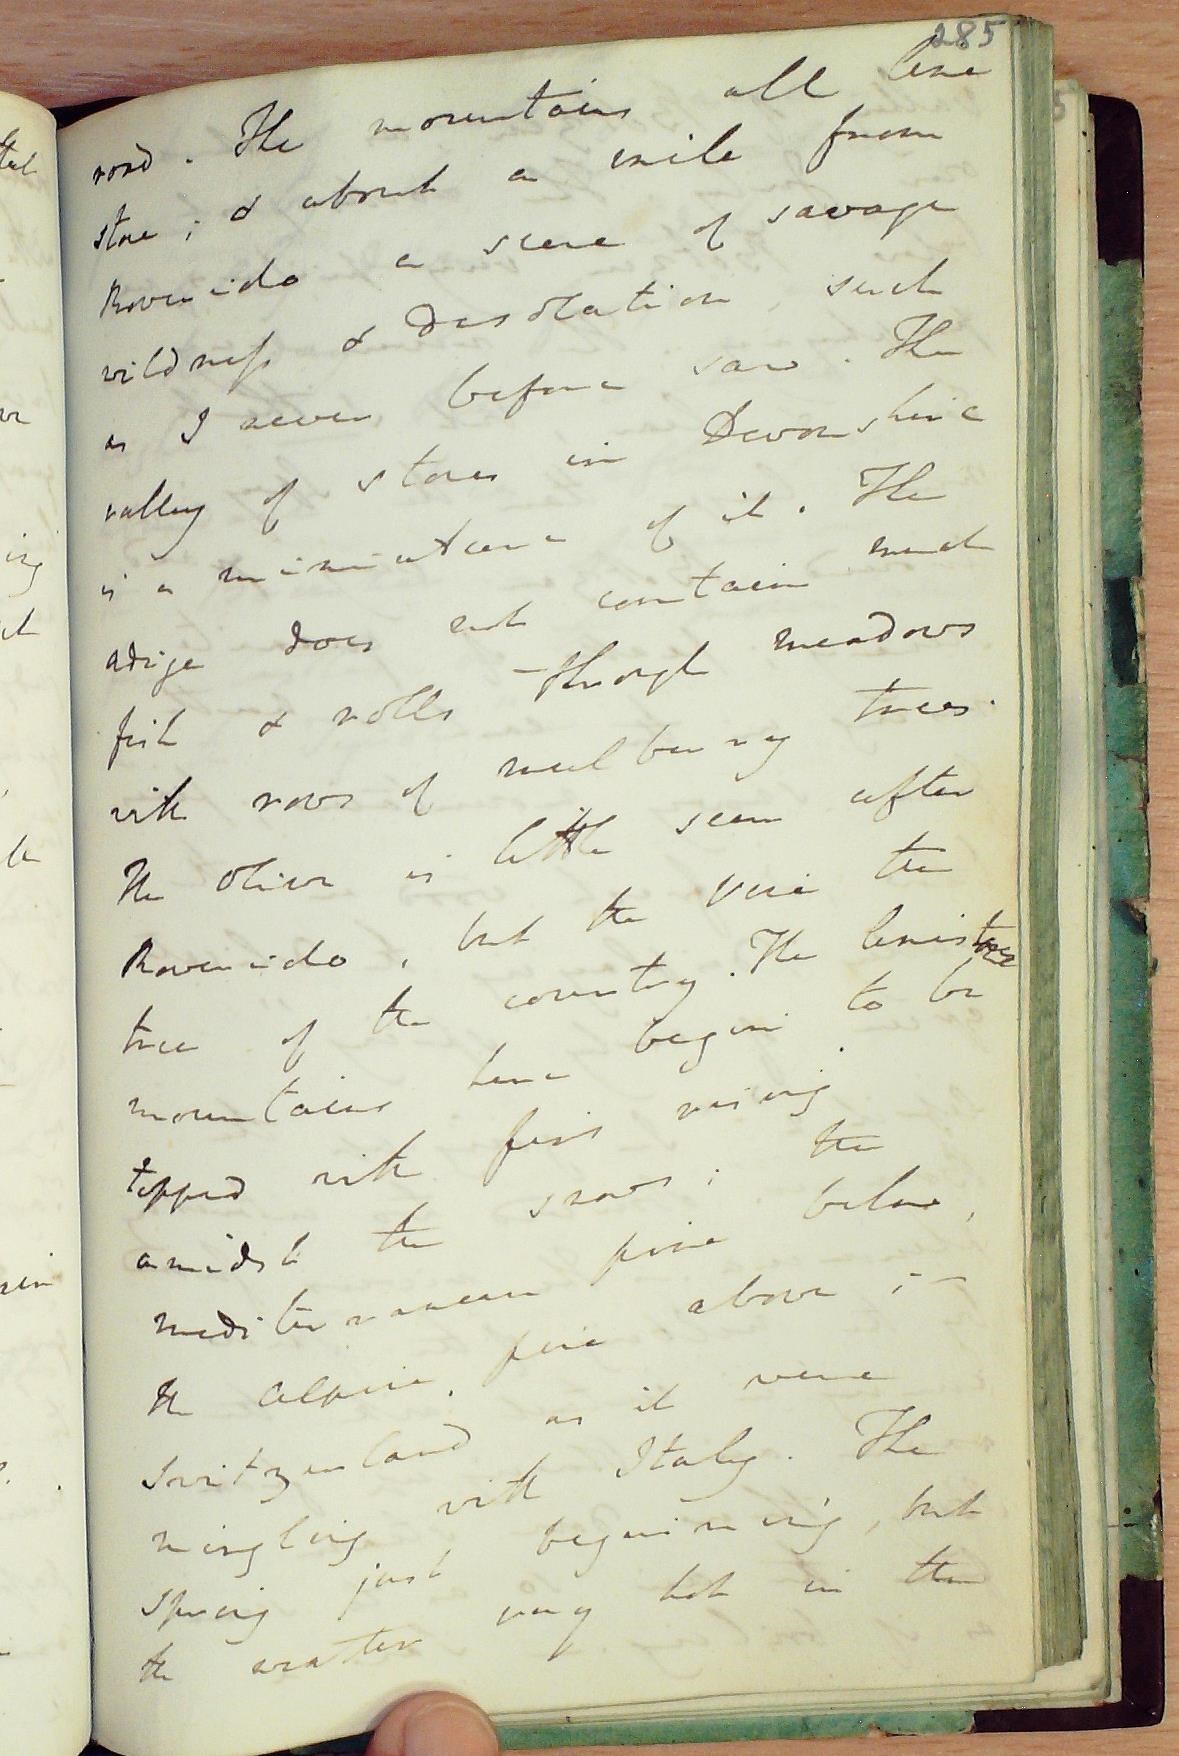 285
road. The mountains all lime
stone; & about a mile from
Roveredo a scene of savage
wildness & desolation, such
as I never before saw. The
valley of stones in Devonshire
is a miniature of it. The
adige does not contain much
fish & rolls through meadows
with rows of mulberry trees.
The olive is little seen after
Roveredo, but the vine the
tree of the country. The limestone
mountains here begin to be
topped with firs rising
amidst the snows; the
mediterranean pine below,
the alpine pine above; –
Switzerland as it were
mingling with Italy. The
spring just beginning, but
the weather very hot in the